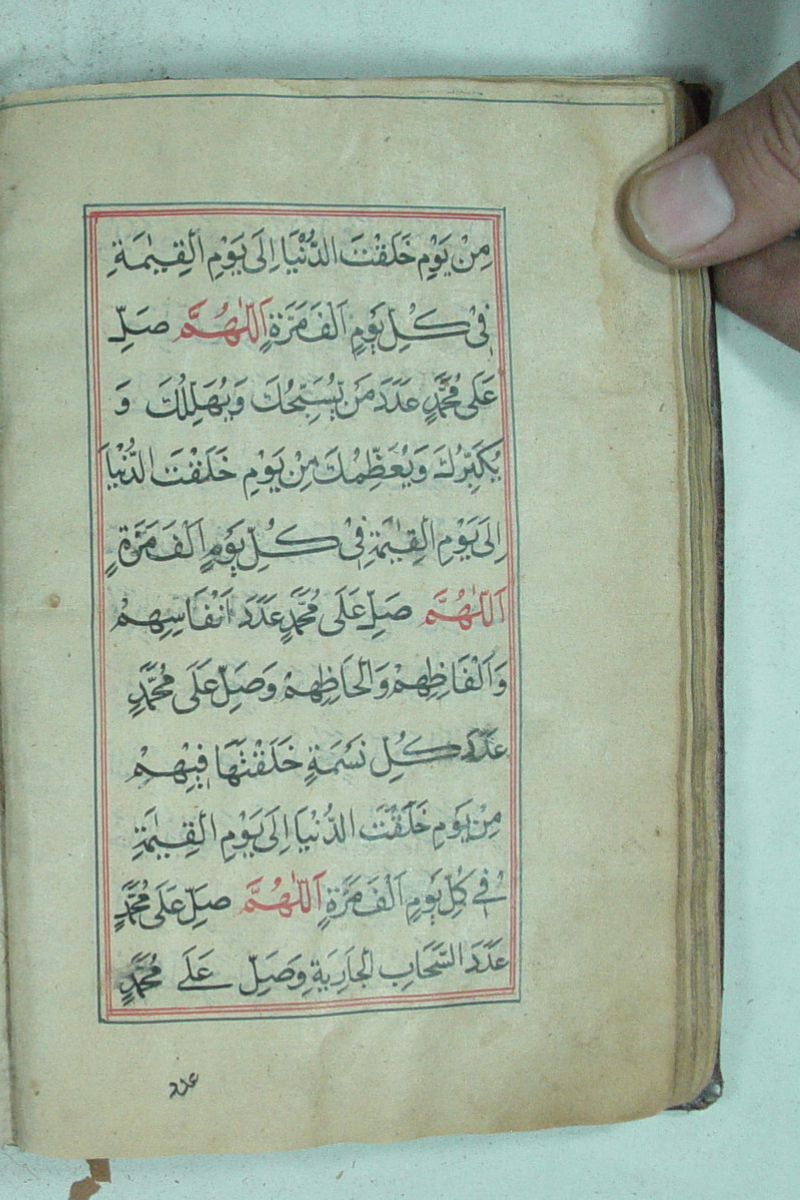 مِنْ يَوْمِ خَلَقْتَ الدُّنْيَا اِلَى يَوْمِ الْقِيٰمَةِ
فِىْ كُلِّ يَوْمٍ اَلْفَ مَرَّةٍ اَللّٰهُمَّ صَلِّ
عَلَى مُحَمَّدٍ عَدَدَ مَنْ يُسَبِّحُكَ وَيُهَلِّلُكَ وَ
يُكَبِّرُكَ وَيُعَظِّمُكَ مِنْ يَوْمِ خَلَقْتَ الدُّنْيَا
اِلَى يَوْمِ الْقِيٰمَةِ فِىْ كُلِّ يَوْمٍ اَلْفَ مَرَّةٍ
اَللّٰهُمَّ صَلِّ عَلَى مُحَمَّدٍ عَدَدَ اَنْفَاسِهِمْ
وَاَلْفَاظِهِمْ وَاَلْحَاظِهِمْ وَصَلِّ عَلَى مُحَمَّدٍ
عَدَدَ كُلِّ نَسَمَةٍ خَلَقْتَهَا فِيْهِمْ
مِنْ يَوْمِ خَلَقْتَ الدُّنْيَا اِلَى يَوْمِ الْقِيٰمَةِ
فِے كُلِّ يَوْمٍ اَلْفَ مَرَّةٍ اَللّٰهُمَّ صَلِّ عَلَى مُحَمَّدٍ
عَدَدَ السَّحَابِ الْجَارِيَةِ وَصَلِّ عَلَے مُحَمَّدٍ
عدد